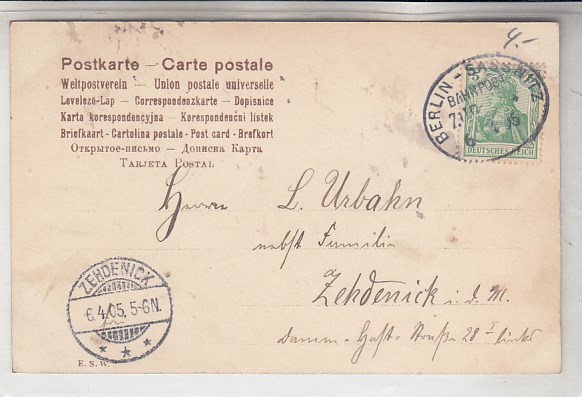 4.-
Postkarte — Carte postale
Weltpostverein — Union postale universelle
Levelező-Lap — Correspondenzkarte — Dopisnice
Karta korespondencyjna — Korespondenční lístek
Briefkaart - Cartolina postale - Post card - Brefkort
Открытое-письмо — Дописна Карта
TARJETA POSTAL
BERLIN - SASSNITZ
BAHNPOST
DEUTSCHES REICH
Herrn L. Urbahn
nebst Familie
Zehdenick i. d. M.
Damm-Hast-Straße 28 I links
ZEHDENICK
6.4.05. 5-6N.
E. S. W.